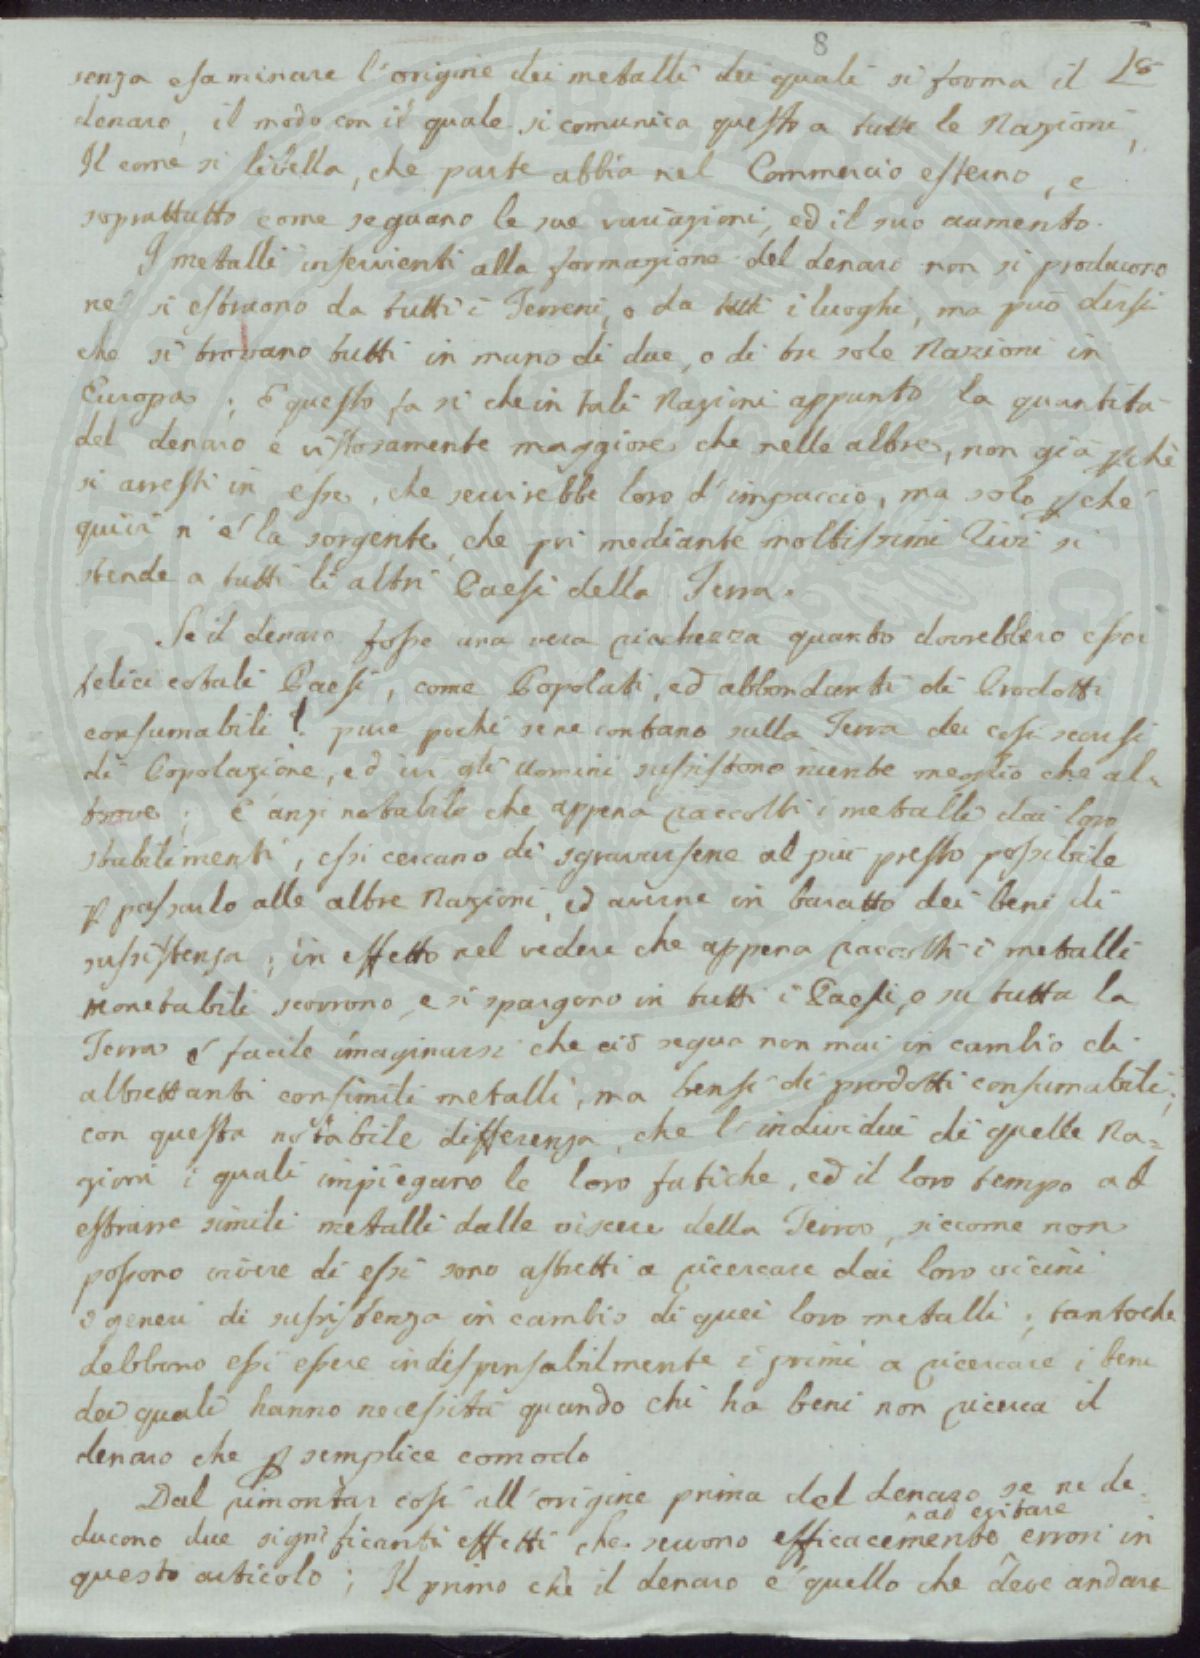 8
18
senza esaminare l'origine dei metalli dei quali si forma il
denaro, il modo con il quale si comunica questo a tutte le Nazioni,
Il come si livella, che parte abbia nel Commercio esterno, e
soprattutto come seguano le sue variazioni, ed il suo aumento.
I metalli inservienti alla formazione del denaro non si producono
né si estraono da tutti i Terreni, o da tutti i luoghi, ma può dirsi
che si trovano tutti in mano di due, o di tre sole Nazioni in
Europa; E questo fa si che in tali Nazioni appunto la quantità
del denaro è vistosamente maggiore che nelle altre, non già pchè
si arresti in esse, che servirebbe loro d'impaccio, ma solo pché
quivi n'é la sorgente, che poi mediante moltissimi Rivi si
stende a tutti li altri Paesi della Terra.
Se il denaro fosse una vera ricchezza quanto dovrebbero esser
felici cotali Paesi, come Popolati, ed abbondanti di Prodotti
consumabili! pure pochi se ne contano sulla Terra dei così scarsi
di Popolazione, ed ivi gli Uomini sussistono niente meglio che al=
trove; é anzi notabile che appena raccolti i metalli dai loro
stabilimenti, essi cercano di sgravarsene al più presto possibile
p passarlo alle altre Nazioni, ed averne in baratto dei beni di
sussistenza; in effetto nel vedere che appena raccolti i metalli
monetabili scorrono, e si spargono in tutti i Paesi, o su tutta la
Terra é facile imaginarsi che ciò segua non mai in cambio di
altrettanti consimili metalli, ma bensì di prodotti consumabili;
con questa notabile differenza, che l'individui di quelle Na=
zioni i quali impiegano le loro fatiche, ed il loro tempo ad
estrarre simili metalli dalle viscere della Terra, siccome non
possono vivere di essi sono astretti a ricercare dai loro vicini
i generi di sussistenza in cambio di quei loro metalli; tantoche
debbono essi essere indispensabilmente i primi a ricercare i beni
dei quali hanno necessità quando chi ha beni non ricerca il
denaro che p semplice comodo
Dal rimontar così all'origine prima del denaro se ne de=
ad evitare
ducono due significanti effetti che servono efficacemente errori in
questo articolo; Il primo che il denaro é quello che deve andare